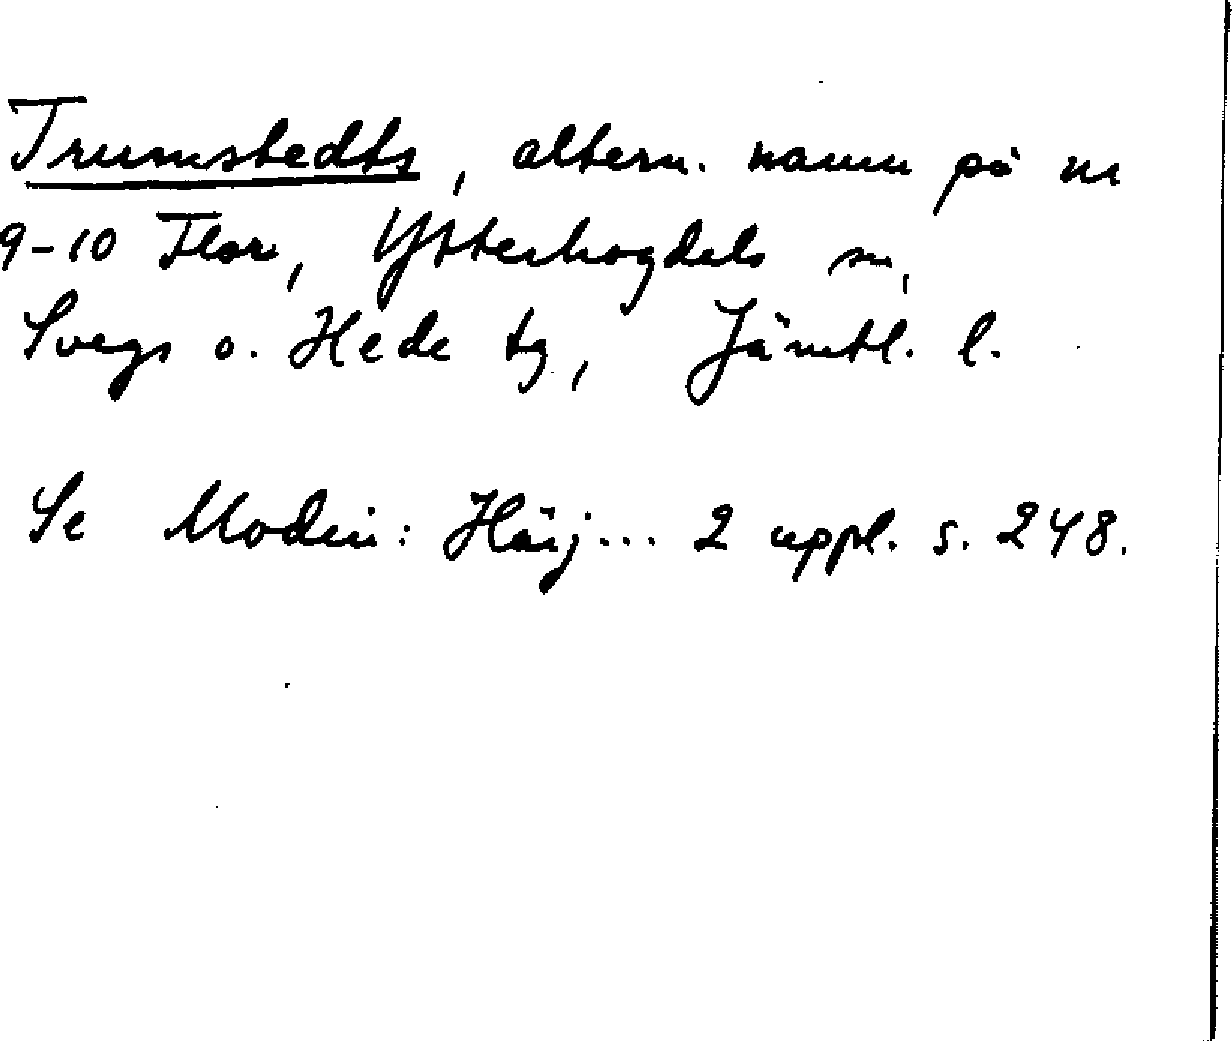 Trumstedts, altern. namn på nr
9-10 Flor, Ytterhogdals sn,
Svegs o. Hede tg, Jämtl. l.
Se Modin: Härj... 2 uppl. s. 248.